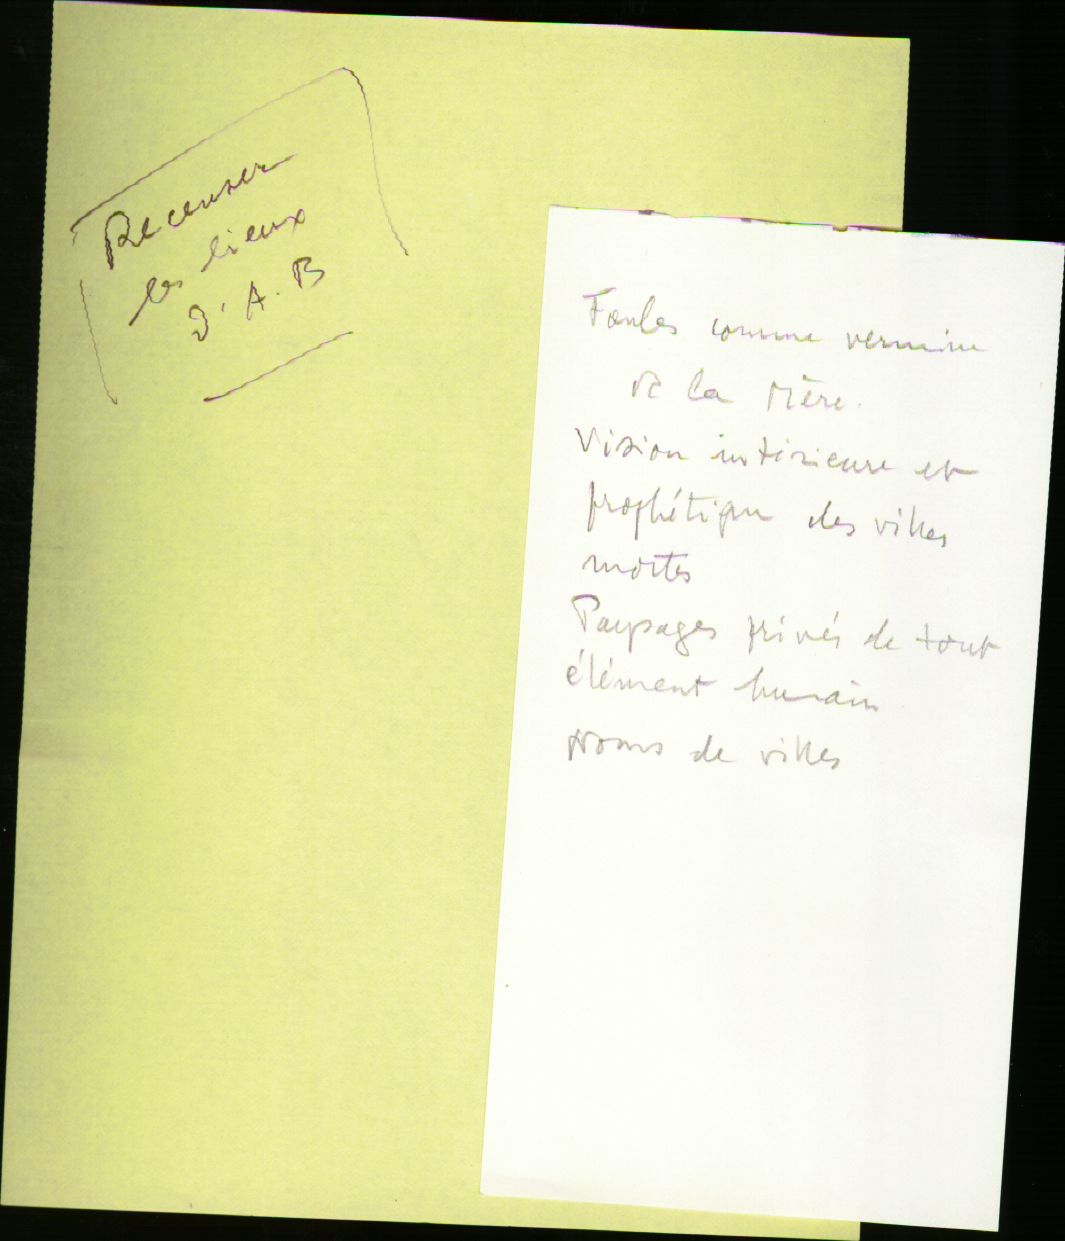 Recenser
les lieux
d'A.B
Foules comme vermine
de la Mère.
Vision intérieure et
prophétique des villes
mortes
Paysages privés de tout
élément humain
noms de villes